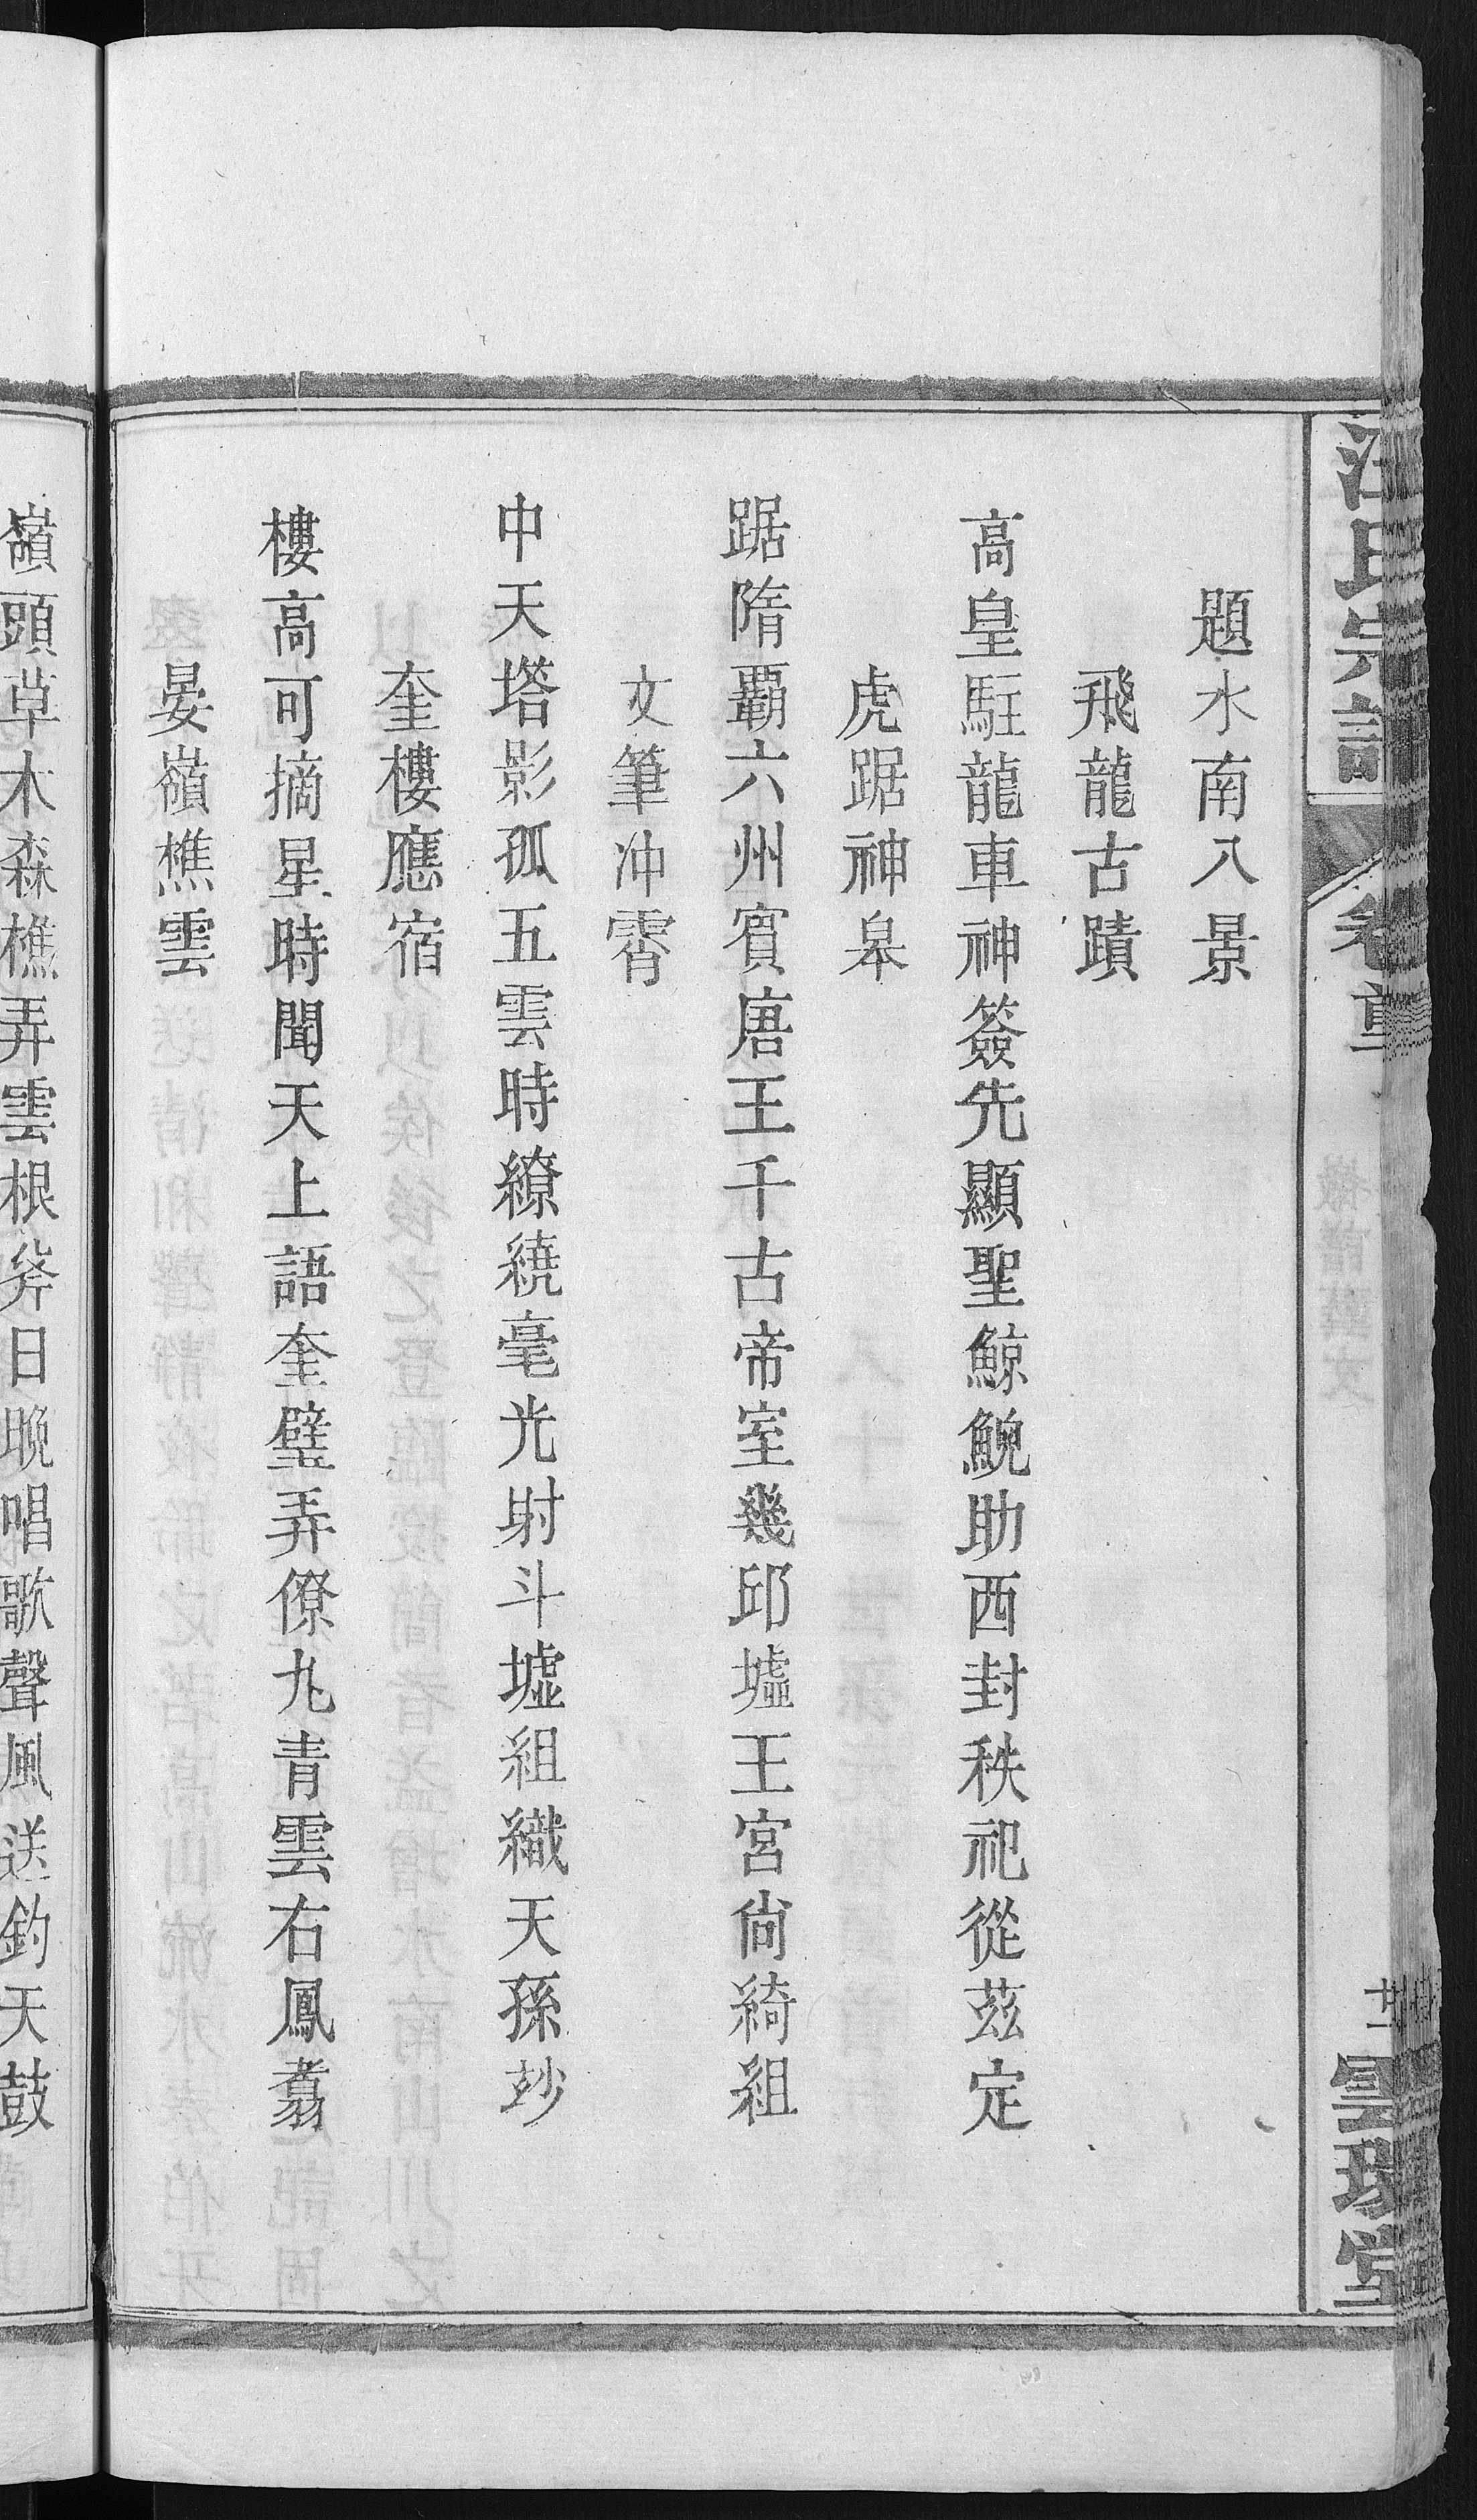 汪氏宗譜
卷首
廿一
題水南八景
飛龍古蹟
高皇駐龍車神簽先顯聖鯨鯢助西封秩祀從茲定
虎踞神皋
踞隋覇六州賓唐王千古帝室幾邱墟王宮尙綺組
文筆冲霄
中天塔影孤五雲時繚繞毫光射斗墟組織天孫玅
奎樓應宿
樓高可摘星時聞天上語奎璧弄僚九青雲右鳳翥
晏嶺樵雲
嶺頭草木森樵弄雲根斧日晚唱歌聲風送釣天鼓